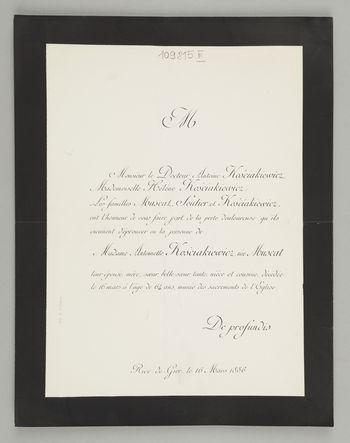 109815 E
M
Monsieur le Docteur Antoine Kościakiewicz,
Mademoiselle Hélène Kościakiewicz,
Les familles Muscat, Soulier et Kościakiewicz,
ont l'honneur de vous faire part de la perte douloureuse qu'ils
viennent d'éprouver en la personne de
Madame Antoinette Kościakiewicz, née Muscat
leur épouse, mère, sœur, belle-sœur, tante, nièce et cousine, décédée
le 16 mars à l'âge de 62 ans, munie des sacrements de l'Église.
De profundis
Rive de Gier, le 16 Mars 1886